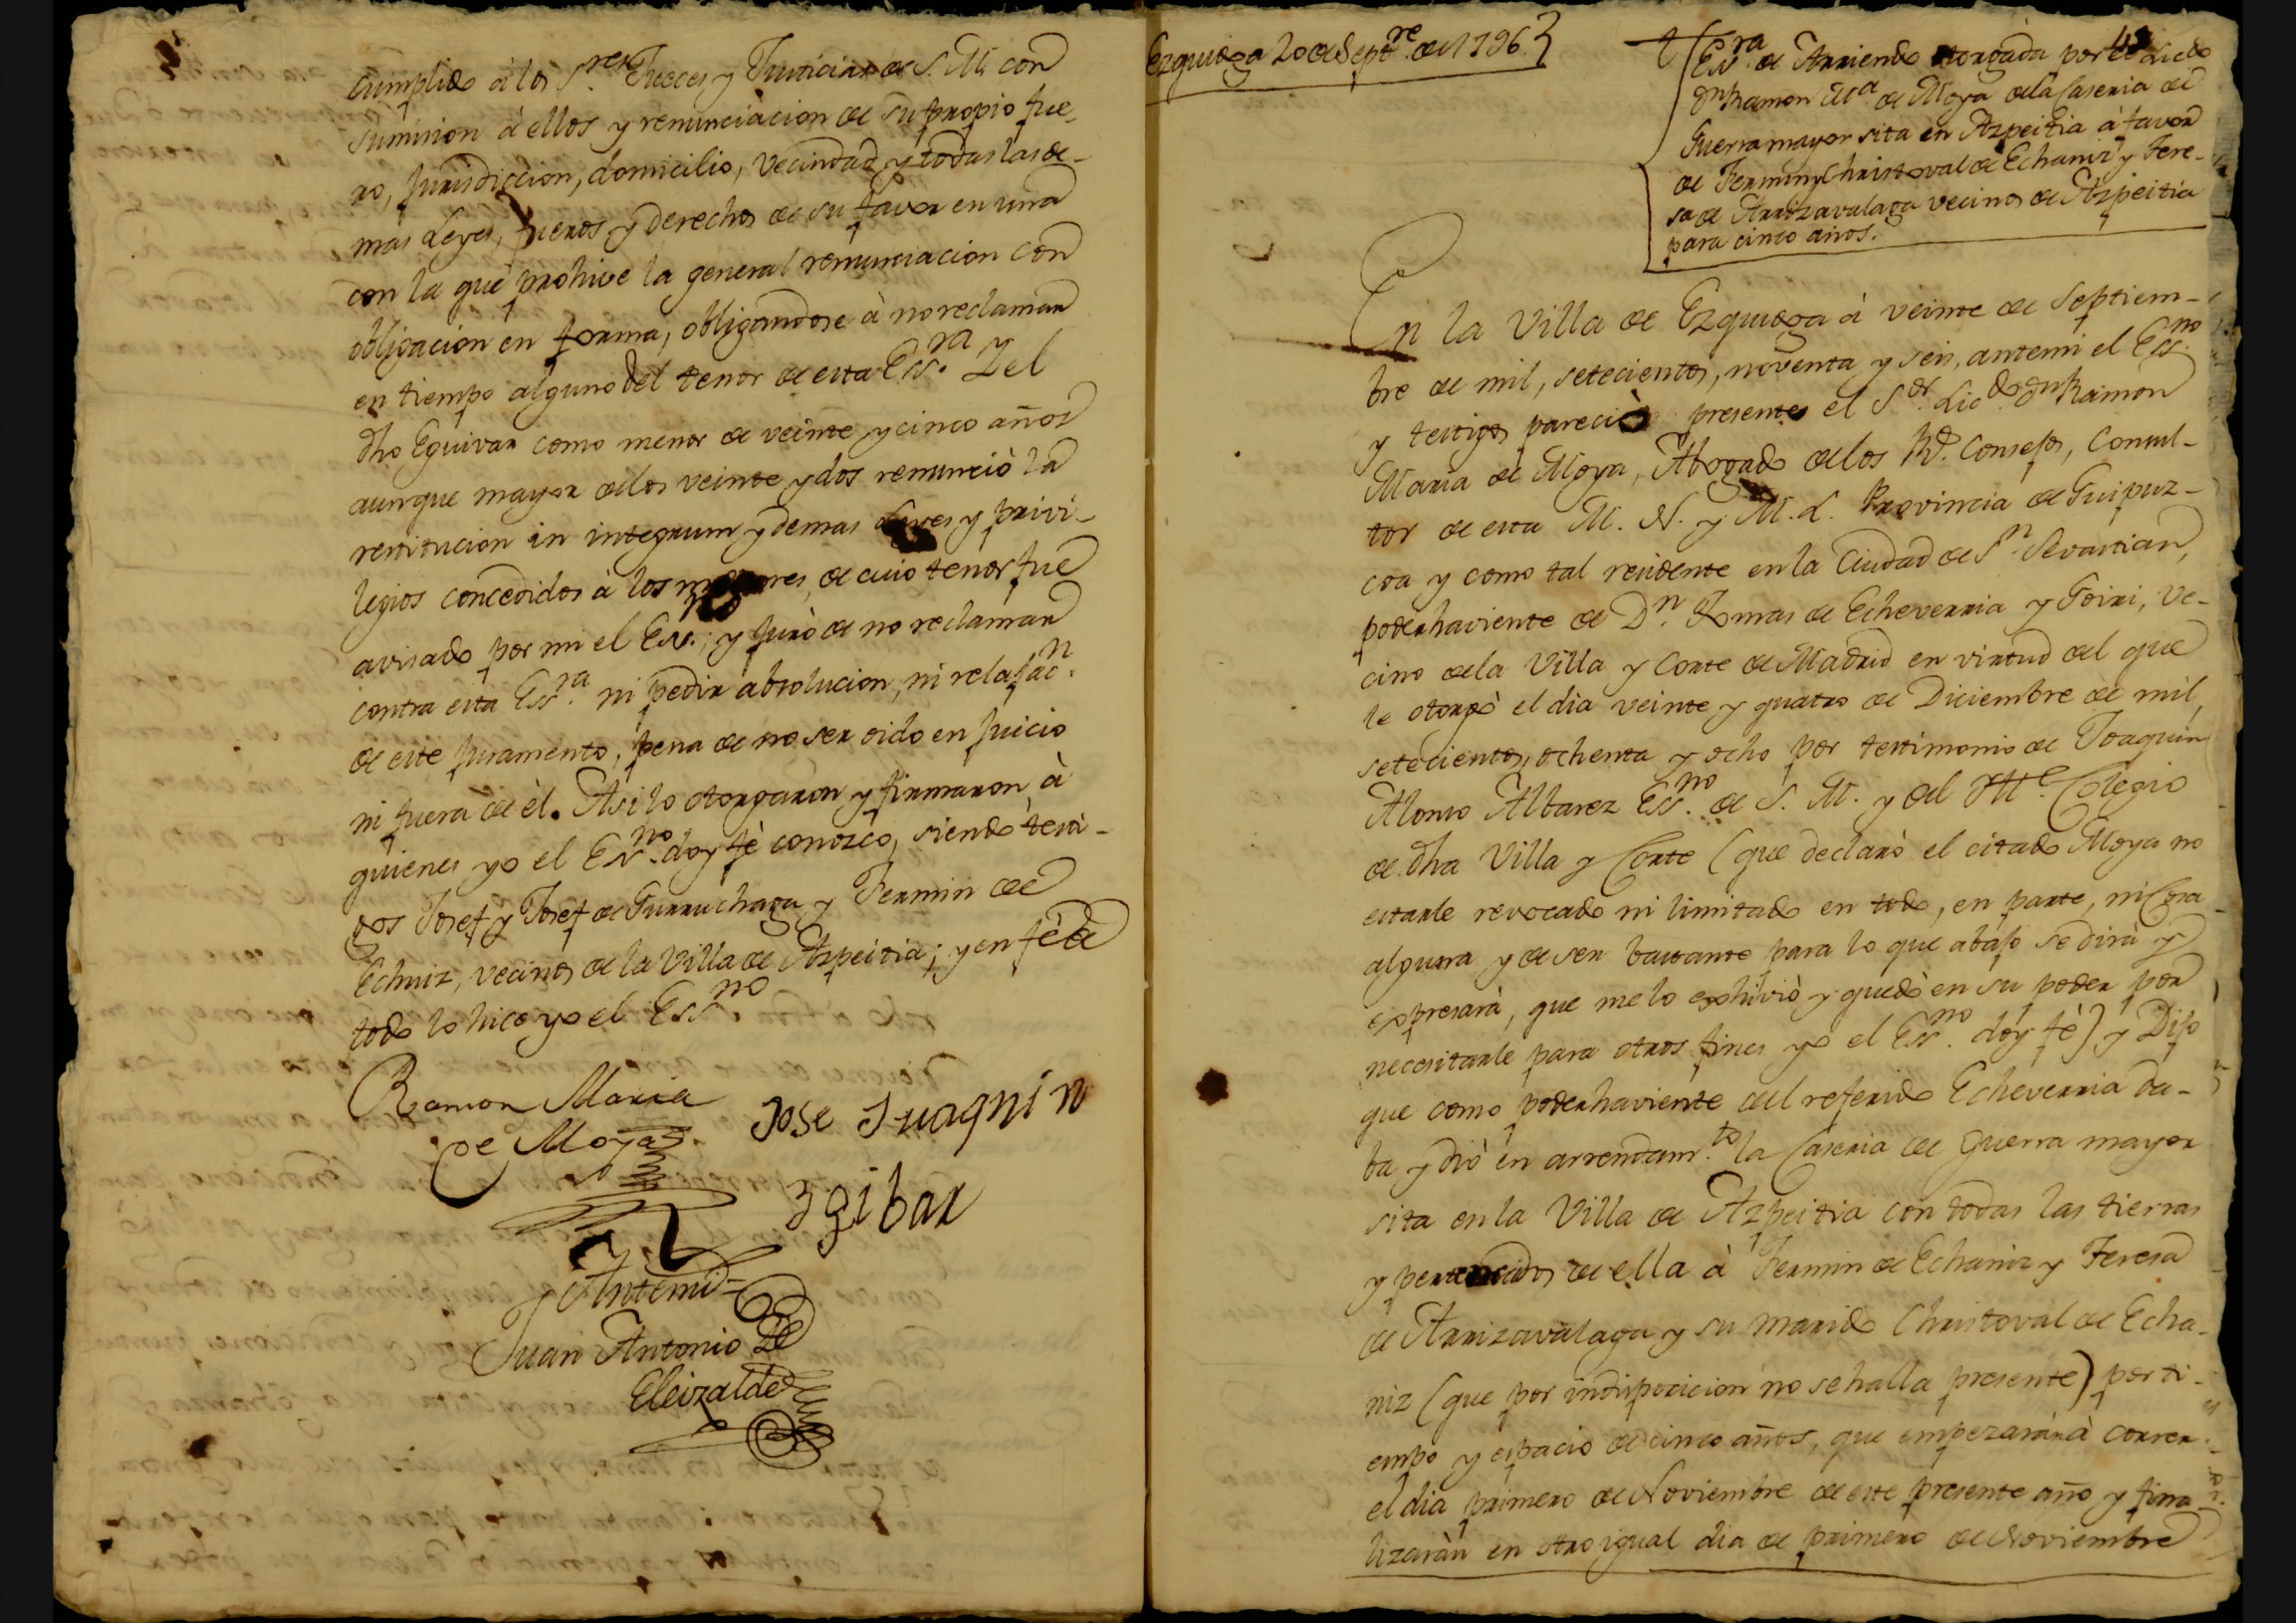 cumplido à los S.res Jueces y Justicias de S. M. con
sumision à ellos y renunciacion de su propio fue-
ro, jurisdiccion, domicilio, vecindad y todas las de-
mas Leyes, fueros y derechos de su favor en una
con la que prohive la general renunciacion con
obligacion en forma, obligandose à no reclamar
en tiempo alguno del tenor de esta Ess.ra Y el
dho Eguivar como menor de veinte y cinco años
aunque mayor de los veinte y dos renunciò la
restitucion in integrum y demas Leyes y privi-
legios concedidos à los menores, de cuio tenor fue
avisado por mi el Ess.no; y jurò de no reclamar
contra esta Ess.ra ni pedir absolucion, ni relajac.n
de este juramento, pena de no ser oido en juicio
ni fuera de èl. Asi lo otorgaron y firmaron à
quienes yo el Ess.no doy fè conozco, siendo testi-
gos Josef y Josef de Gurruchaga y Fermin de
Echniz, vecinos de la Villa de Azpeitia; y en fè de
todo lo hice yo el Ess.no
Ramon Maria
de Moya
Jose Juaqnin
Igibar
Antemi
Juan Antonio de
Eleizalde
Ezquioga 20 de Sept.re de 1796.
48
Ess.ra de Arriendo otorgada por el Licdo
Dn Ramon M.a de Moya de la Caseria de
Guerra mayor sita en Azpeitia à favor
de Fermin y Christoval de Echaniz y Tere-
sa de Arrizavalaga vecinos de Azpeitia
para cinco años.
En la Villa de Ezquioga à veinte de Septiem-
bre de mil, setecientos, noventa y seis, antemi el Ess.no
y testigos pareciò presente el S.or Lic.do Dn Ramon
Maria de Moya, Abogado de los R.s Consejos, Consul-
tor de esta M. N. y M. L. Provincia de Guipuz-
coa y como tal residente en la Ciudad de S.n Sevastian,
poderhaviente de D.n Tomas de Echeverria y Goiri, ve-
cino de la Villa y Corte de Madrid en virtud del que
le otorgò el dia veinte y quatro de Diciembre de mil,
setecientos, ochenta y ocho por testimonio de Joaquin
Alonso Albarez Ess.no de S. M. y del Itt.e Colegio
de dha Villa y Corte (que declarò el citado Moya no
estarle revocado ni limitado en todo, en parte, ni Cosa
alguna y de ser bastante para lo que abajo se dirà y
expresarà, que me lo exhiviò y quedò en su poder por
necesitarle para otros fines yo el Ess.no doy fè) y Dijo
que como poderhaviente del referido Echeverria da-
ba y diò en arrendam.to la Caseria de Guerra mayor
sita en la Villa de Azpeitia con todas las tierras
y pertenecidos de ella à Fermin de Echaniz y Teresa
de Arrizavalaga y su marido Christoval de Echa-
niz (que por indisposicion no se halla presente) por ti-
empo y espacio de cinco años, que empezaràn à correr
el dia primero de Noviembre de este presente año y fina-
lizaràn en otro igual dia de primero de Noviembre